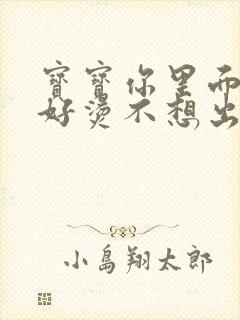 寶寶你里面
好燙不想出
小島翔太郎